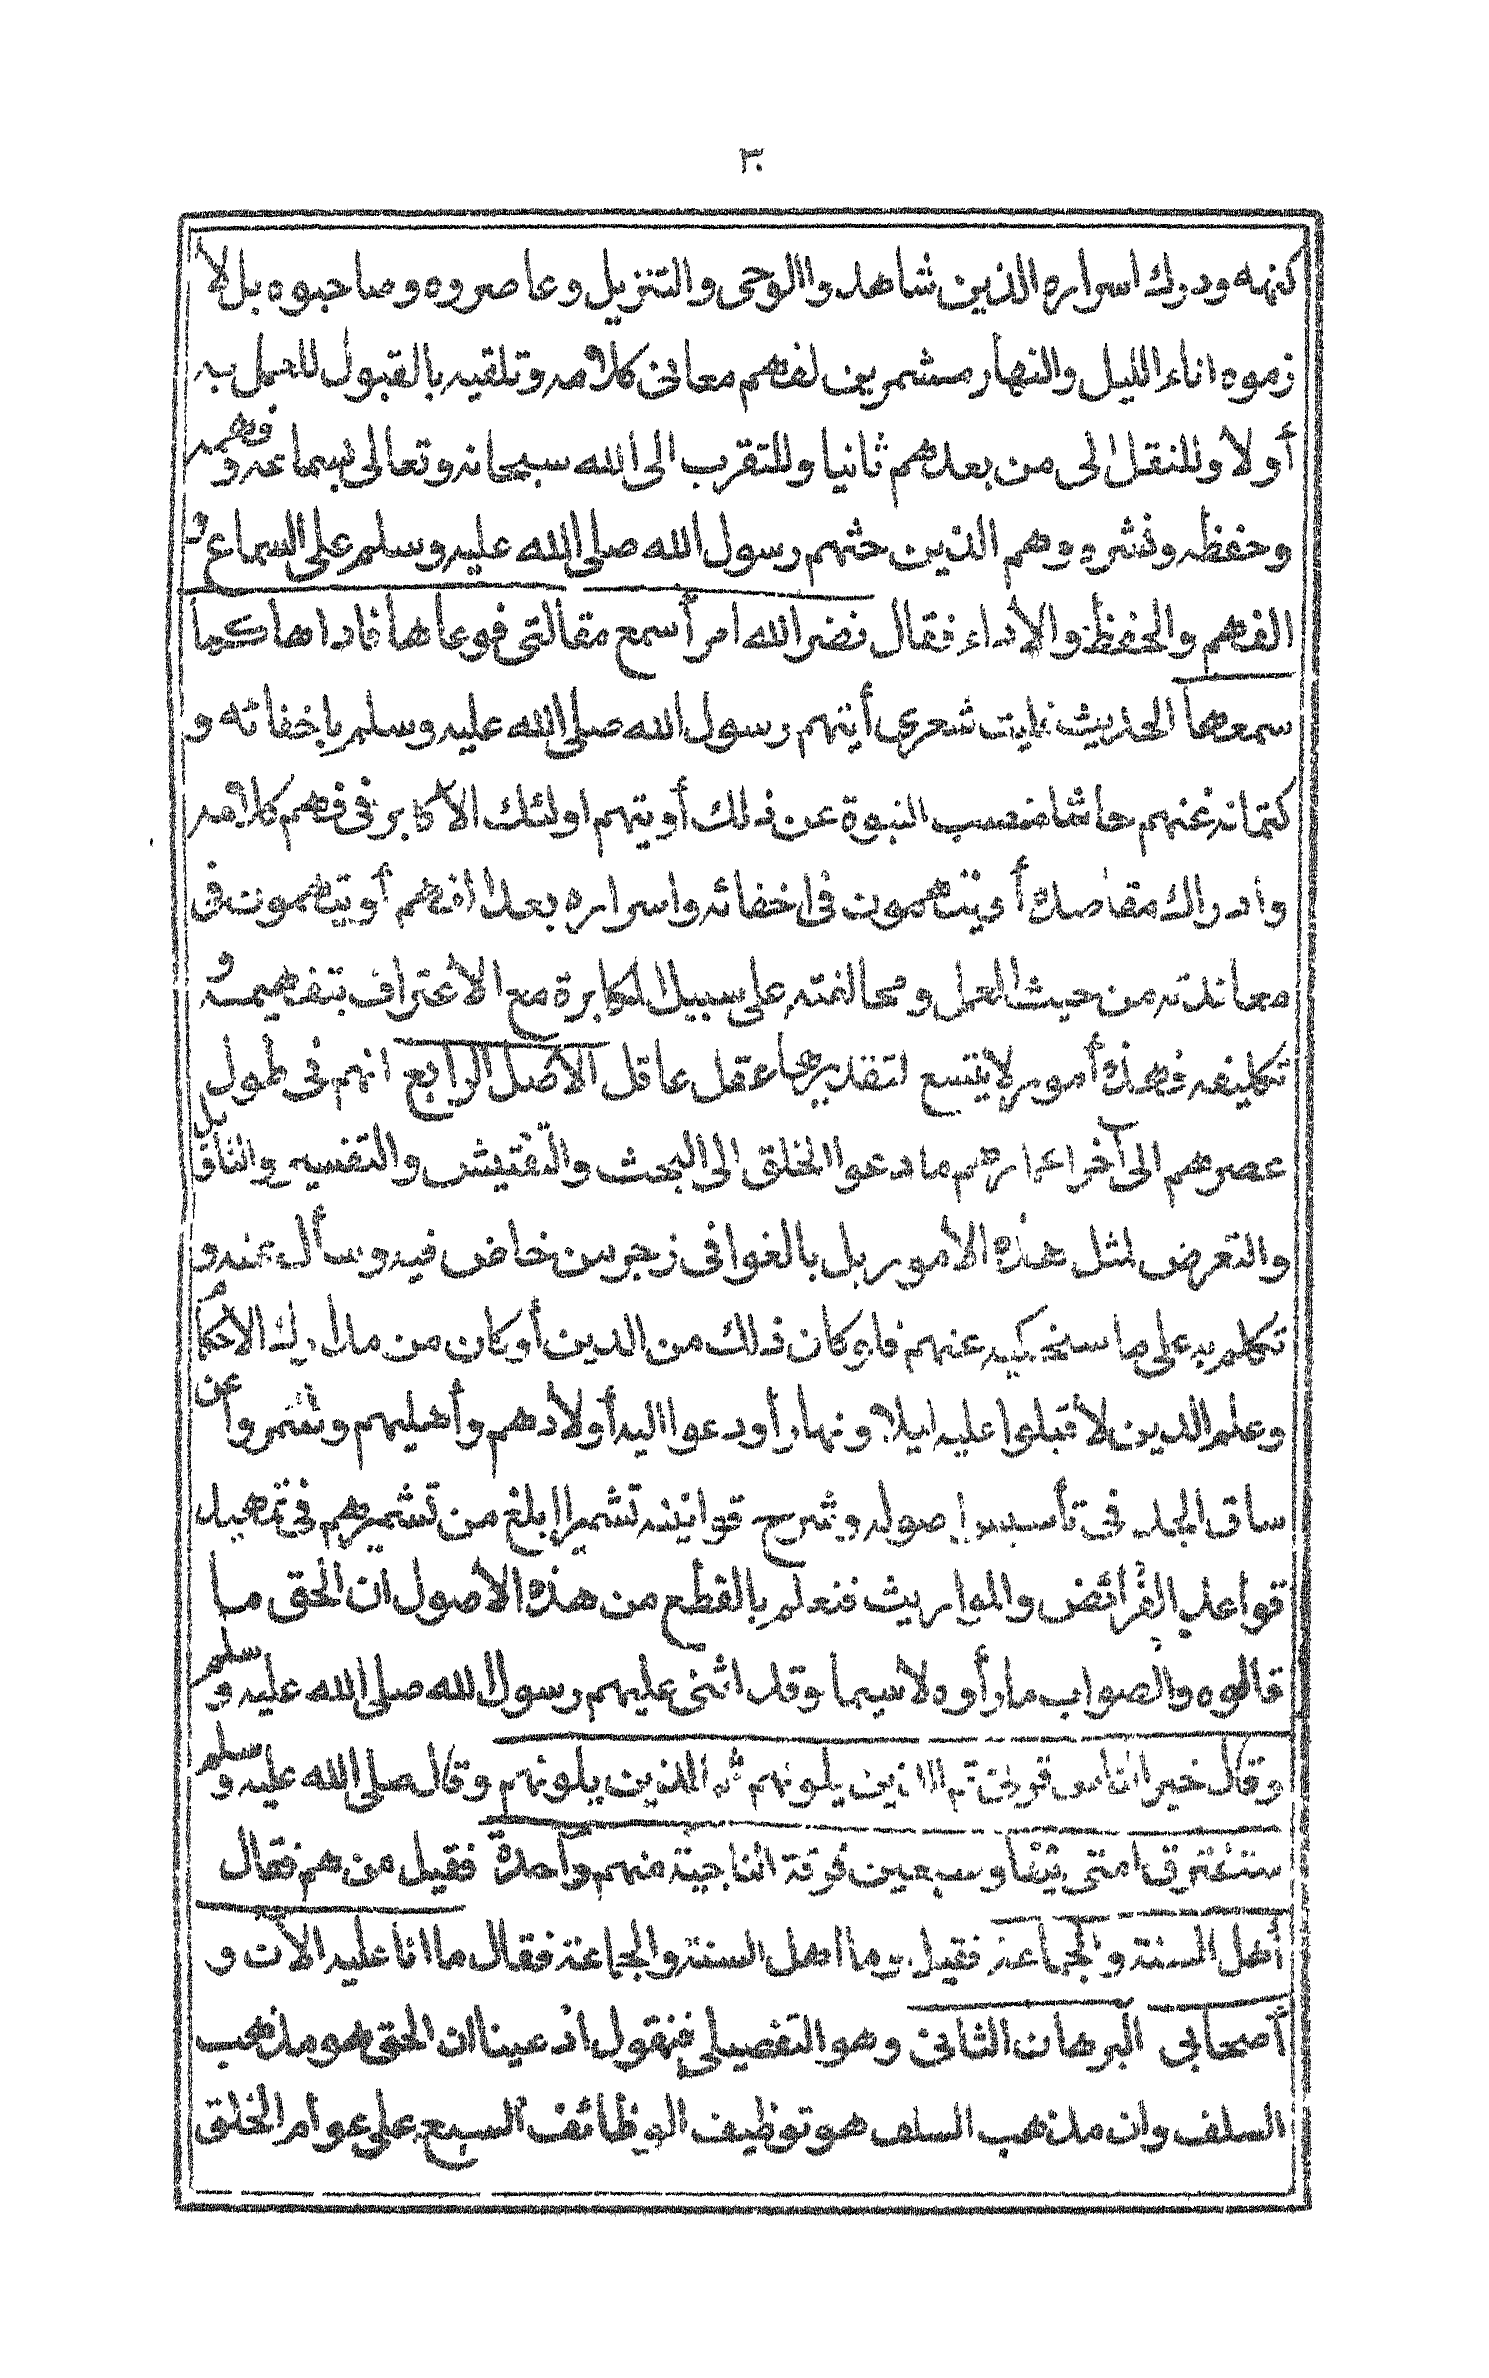 ٢٠
كنهه ودرك اسراره الذين شاهدوا الوحى والتنزيل وعاصروه وصاحبوه بل لا
زموه اناء الليل والنهار مشمرين لفهم معانى كلامه وتلقيه بالقبول للعمل به
أولا وللنقل الى من بعدهم ثانيا وللتقرب الى الله سبحانه وتعالى بسماعه وفهمه
وحفظه ونشره وهم الذين حثهم رسول الله صلى الله عليه وسلم على السماع و
الفهم والحفظ والأداء فقال نضر الله امرأ سمع مقالتى فوعاها فاداها كما
سمعها الحديث فليت شعرى أيتهم رسول الله صلى الله عليه وسلم باخفائه و
كتمانه عنهم حاشا منصب النبوة عن ذلك أو يتهم اولئك الأكابر فى فهم كلامه
وادراك مقاصده أو يتهمون فى اخفائه واسراره بعد الفهم أو يتهمون فى
معاندته من حيث العمل ومخالفته على سبيل المكابرة مع الاعتراف بتفهيمه و
تكليفه فهذه أمور لا يتسع لتقديرها عقل عاقل الأصل الرابع انهم فى طول
عصرهم الى آخر اعمارهم ما دعوا الخلق الى البحث والتفتيش والتفسير والتاويل
والتعرض لمثل هذه الأمور بل بالغوا فى زجر من خاض فيه وسأل عنه و
تكلم به على ما سنحكيه عنهم فلو كان ذلك من الدين أو كان من مدارك الأحكام
وعلم الدين لأقبلوا عليه ليلا ونهارا ودعوا اليه أولادهم وأهليهم وشمروا عن
ساق الجد فى تأسيس اصوله وشرح قوانينه تشميرا ابلغ من تشميرهم فى تمهيد
قواعد الفرائض والمواريث فنعلم بالقطع من هذه الأصول ان الحق ما
قالوه والصواب ما رأوه لا سيما وقد اثنى عليهم رسول الله صلى الله عليه وسلم
وقال خير الناس قرنى ثم الذين يلونهم ثم الذين يلونهم وقال صلى الله عليه وسلم
ستفترق امتى نيفا وسبعين فرقة الناجية منهم واحدة فقيل من هم فقال
أهل السنة والجماعة فقيل وما اهل السنة والجماعة فقال ما انا عليه الآن و
أصحابى البرهان الثانى وهو التفصيلى فنقول ادعينا ان الحق هو مذهب
السلف وان مذهب السلف هو توظيف الوظائف السبع على عوام الخلق